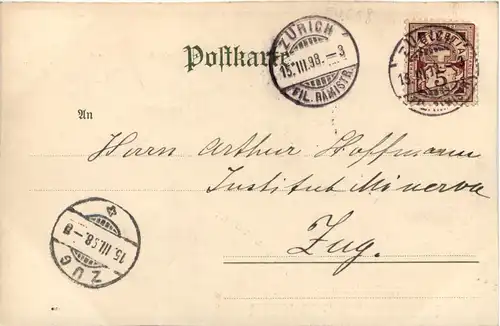 ZÜRICH
15.III.98.–3
FIL. RÄMISTR.
Postkarte.
ZÜRICH
5
An
Herrn Arthur Hoffmann
Institut Minerva
Zug.
15.III.98.–8
ZUG